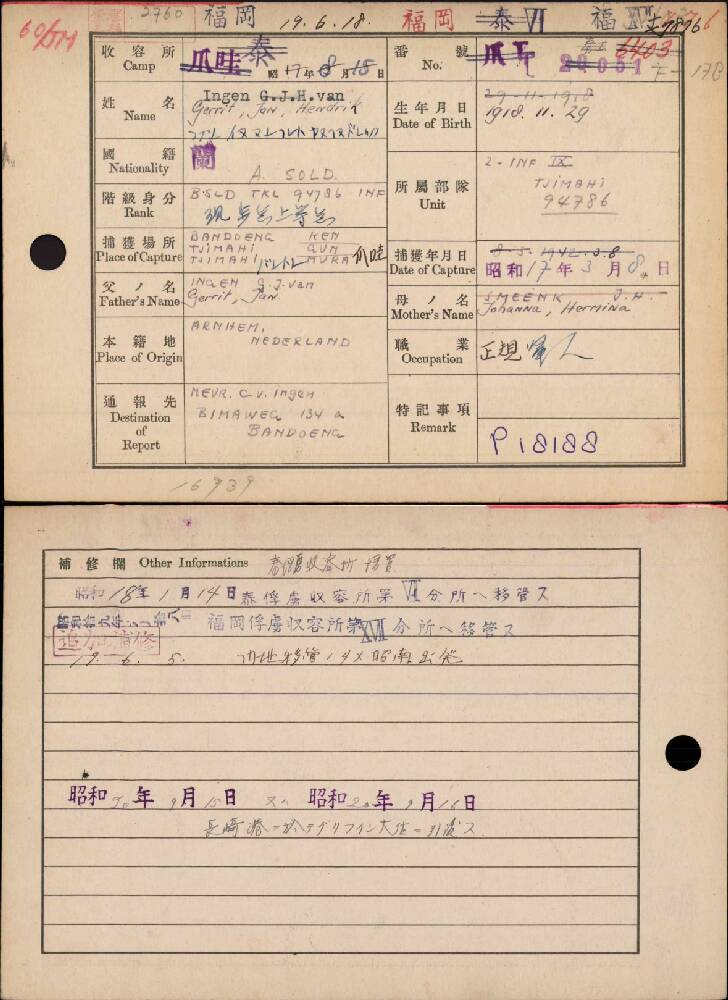 2760 福岡 19.6.18. 福岡 泰 VI 福 XVII
収容所 Camp 爪哇 泰 昭17年8月15日
番號 No. 爪
姓名 Name Ingen G.J.H.van
Gerrit, Jan, Hendrik
生年月日 Date of Birth 29-11-1918
1918. 11. 29
國籍 Nationality 蘭
A. SOLD.
階級身分 Rank B.SLD TKL 94786 INF
所屬部隊 Unit 2-INF IX
TJIMAHI
94786
捕獲場所 Place of Capture BANDOENG KEN
TJIMAHI GUN
TJIMAHI MURA 爪哇
捕獲年月日 Date of Capture 8-3-1942.3.8
昭和17年3月8日
父ノ名 Father's Name INGEN G.J.van
Gerrit, Jan.
母ノ名 Mother's Name SMEENK J.H.
Johanna, Hermina
本籍地 Place of Origin ARNHEM,
NEDERLAND
職業 Occupation 正規軍人
通報先 Destination of Report MEVR. C.v. Ingen
BIMAWEG 134 a
BANDOENG
特記事項 Remark P 18188
16939
補修欄 Other Informations
昭和18年1月14日泰俘虜収容所第VI分所へ移管ス
福岡俘虜収容所第XVII分所へ移管ス
追加補修
19. 6. 5. 内地移管ノタメ昭南出発
昭和20年9月15日 又ハ 昭和20年9月16日
長崎港ニ於テグリフイン大佐ニ引渡ス